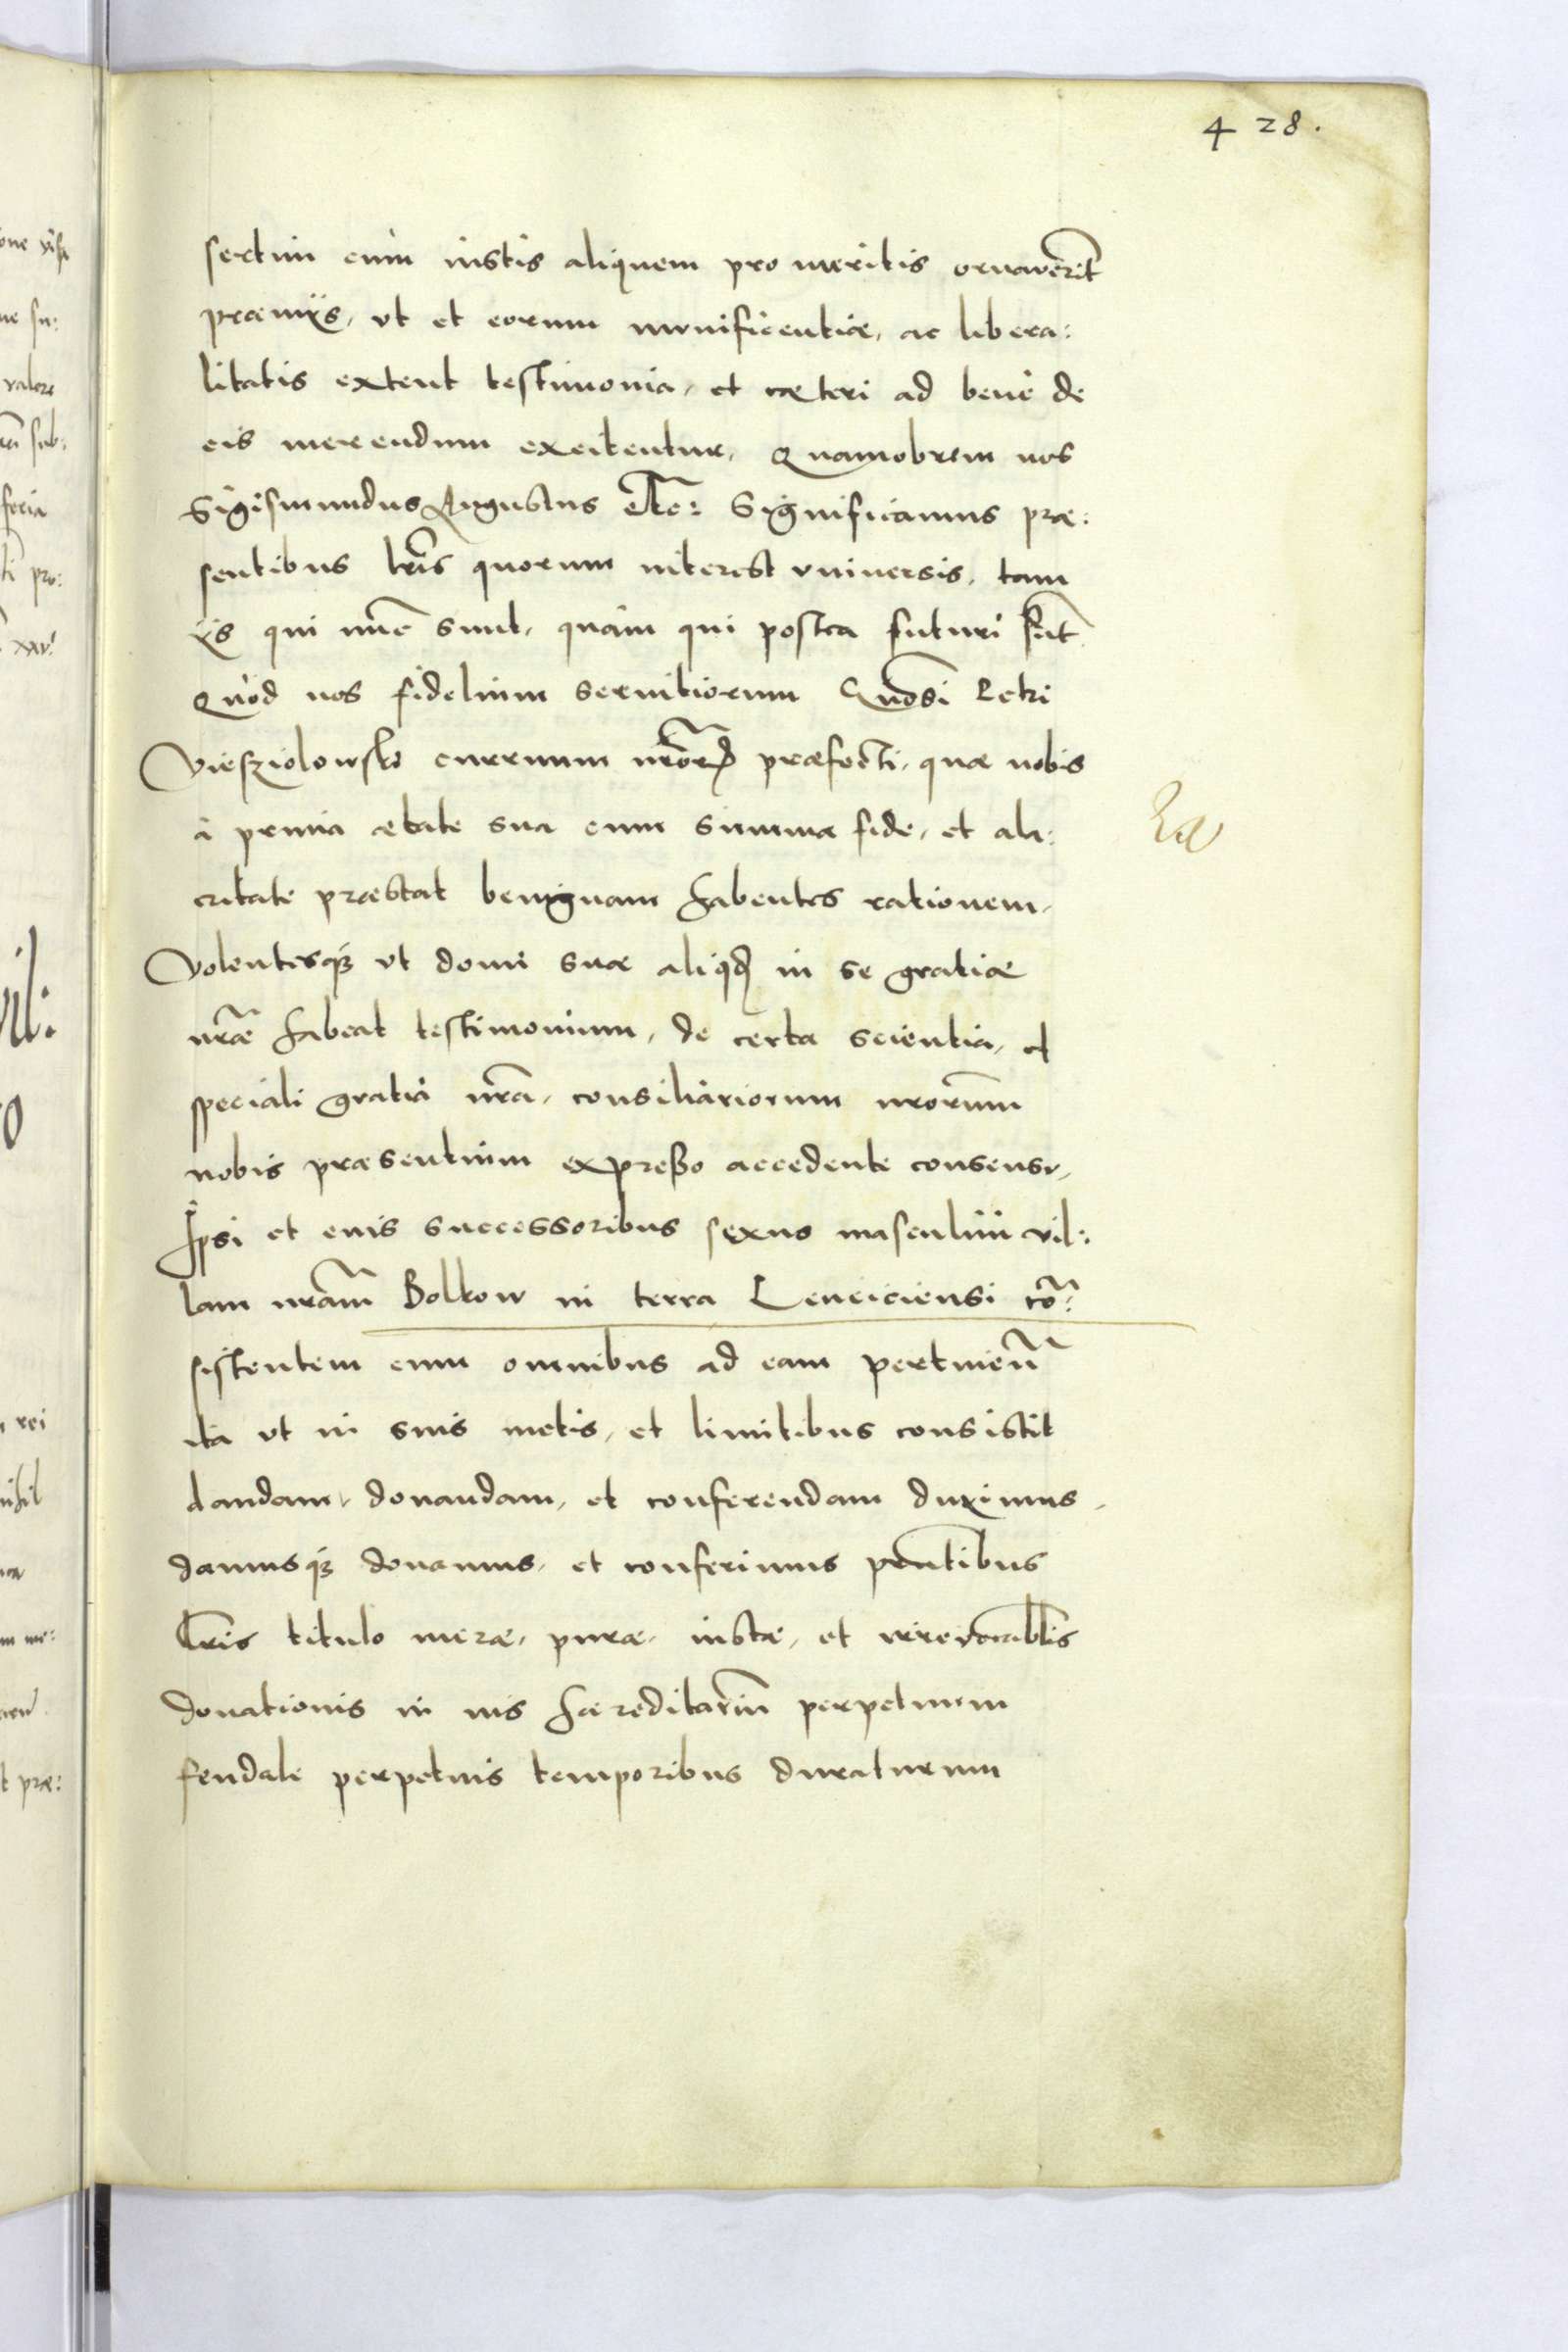 428.
sertim cum iustis aliquem pro meritis ornaverit
præmijs, vt et eorum munificentiæ, ac libera:
litatis extent testimonia, et cæteri ad bene de
eis merendum excitentur, Quamobrem nos
Sigismundus Augustus etc: Significamus præ:
sentibus lris quorum interest vniuersis, tam
ijs qui nuc sunt, quàm qui postea futuri sut
Quòd nos fidelium seruitiorum Gnosi Petri
Viesziolowski curruum nrorum præfecti, quæ nobis
à prima ætate sua cum summa fide, et ala:
critate præstat benignam habentes rationem,
Volentesque vt domi suæ aliquod in se gratiæ
nræ habeat testimonium, de certa scientia, et
speciali gratia nra, consiliariorum nrorum
nobis præsentium expresso accedente consensu,
Ipsi et euis successoribus sexus masculini vil:
lam nram Bolkow in terra Lenciciensi co:
sistentem cum omnibus ad eam pertinen
ita vt in suis metis, et limitibus consistit
dandam, donandam, et conferendam duximus,
damusque donamus, et conferimus pntibus
Lris titulo meræ, puræ, iustæ, et irreuocablis
donationis in ius hæreditarium perpetuum
feudale perpetuis temporibus duraturum